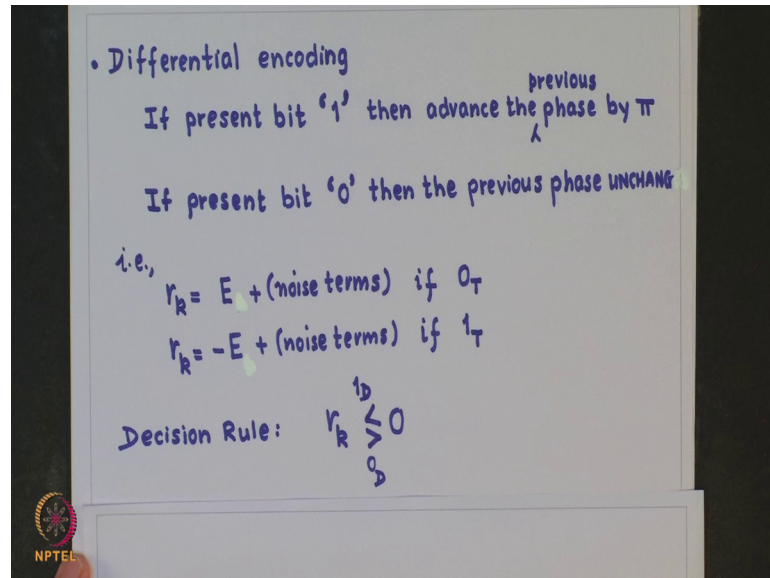 • Differential encoding
previous
If present bit '1' then advance the phase by π
If present bit '0' then the previous phase UNCHANG
i.e.,
r_k = E + (noise terms) if 0_T
r_k = -E + (noise terms) if 1_T
1_D
Decision Rule: r_k ≶ 0
0_D
NPTEL